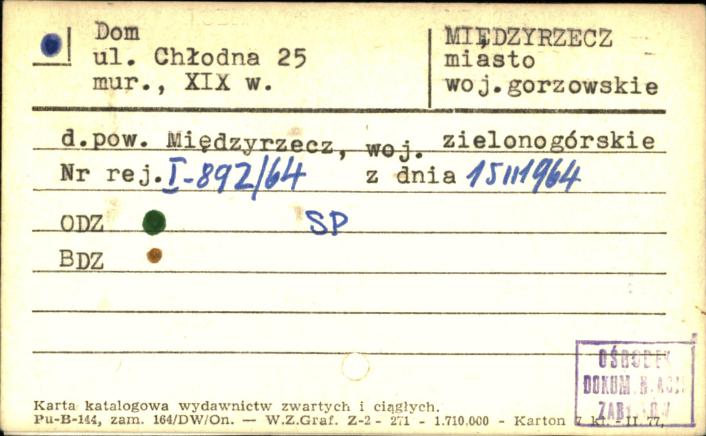 Dom
ul. Chłodna 25
mur., XIX w.
MIĘDZYRZECZ
miasto
woj.gorzowskie
d.pow. Międzyrzecz, woj. zielonogórskie
Nr rej. I-892/64 z dnia 15 III 1964
ODZ SP
BDZ
OŚRODEK
DOKUM.
Karta katalogowa wydawnictw zwartych i ciągłych.
Pu-B-144, zam. 164/DW/On. — W.Z.Graf. Z-2 - 271 - 1.710.000 - Karton 7 kl. -II 77,